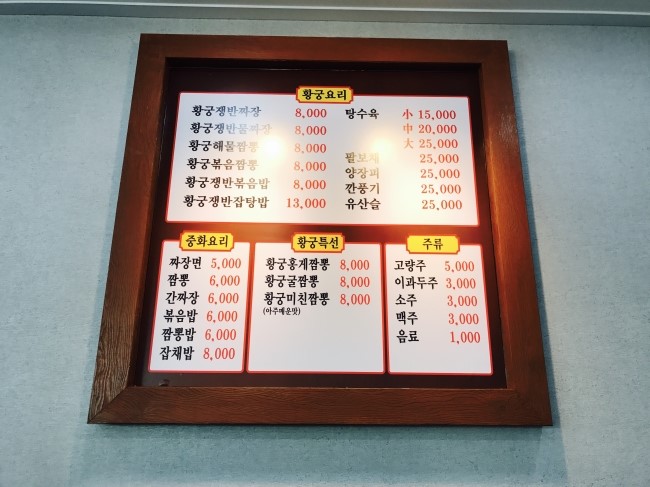 황궁요리
황궁쟁반짜장 8,000
황궁쟁반물짜장 8,000
황궁해물짬뽕 8,000
황궁볶음짬뽕 8,000
황궁쟁반볶음밥 8,000
황궁쟁반잡탕밥 13,000
탕수육 小 15,000
中 20,000
大 25,000
팔보채 25,000
양장피 25,000
깐풍기 25,000
유산슬 25,000
중화요리
짜장면 5,000
짬뽕 6,000
간짜장 6,000
볶음밥 6,000
짬뽕밥 6,000
잡채밥 8,000
황궁특선
황궁홍게짬뽕 8,000
황궁굴짬뽕 8,000
황궁미친짬뽕 8,000
(아주매운맛)
주류
고량주 5,000
이과두주 3,000
소주 3,000
맥주 3,000
음료 1,000